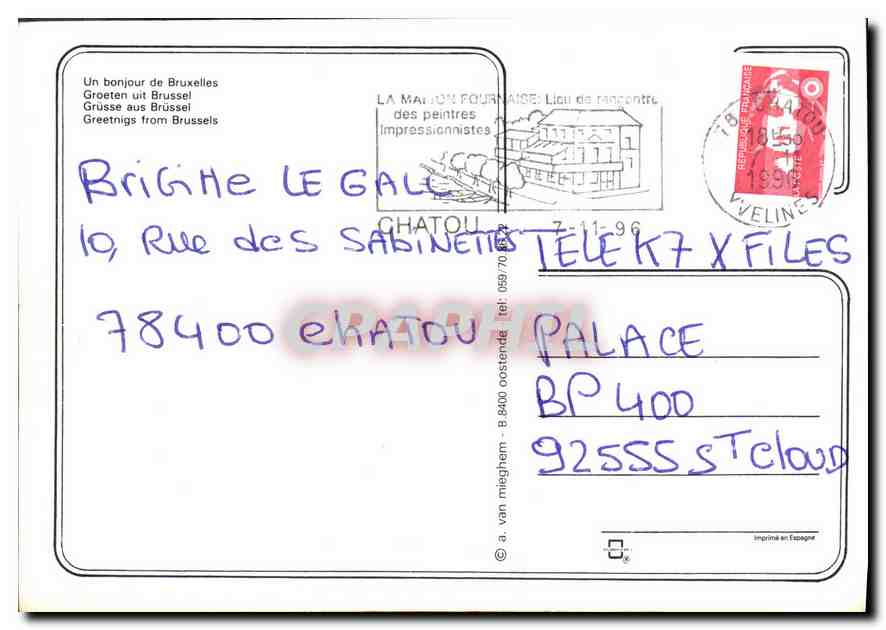 Un bonjour de Bruxelles
Groeten uit Brussel
Grüsse aus Brüssel
Greetnigs from Brussels
LA MAISON FOURNAISE: Lieu de rencontre
des peintres
impressionnistes
CHATOU 7-11-96
78 CHATOU
18H
7-11
1996
YVELINES
REPUBLIQUE FRANÇAISE
LA POSTE
BRIGITTE LE GALL
10, Rue des SABINETTES
78400 CHATOU
TELE K7 X FILES
PALACE
BP 400
92555 ST Cloud
GRAPHEL
© a. van mieghem - B.8400 oostende - tel: 059/70.
Imprimé en Espagne